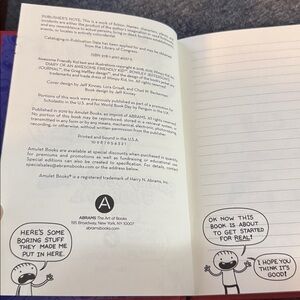 PUBLISHER'S NOTE: This is a work of fiction. Names, characters, places, and
incidents are either the product of the author's imagination or used fictitiously,
and any resemblance to actual persons, living or dead, business establishments,
events, or locales is entirely coincidental.
Cataloging-in-Publication Data has been applied for and may be obtained
from the Library of Congress.
ISBN
Awesome Friendly Kid text and illustrations copyright
DIARY OF AN AWESOME FRIENDLY KID™, ROWLEY JEFFERSON'S
JOURNAL™, the Greg Heffley design™, and the design of the book's jacket are
trademarks and trade dress of Wimpy Kid, Inc. All rights reserved.
Cover design by Jeff Kinney, Lora Grisafi, and Chad W. Beckerman
Book design by Jeff Kinney
Portions of this work were previously published as part of a promotion for
Scholastic in the U.S. and for World Book Day by Penguin
Published in 2019 by Amulet Books, an imprint of ABRAMS. All rights reserved.
No portion of this book may be reproduced, stored in a retrieval system, or
transmitted in any form or by any means, mechanical, electronic, photocopying,
recording, or otherwise, without written permission from the publisher.
Printed and bound in the U.S.A.
10 9 8 7 6 5 4 3 2 1
Amulet Books are available at special discounts when purchased in quantity
for premiums and promotions as well as fundraising or educational use.
Special editions can also be created to specification. For details, contact
specialsales@abramsbooks.com or the address below.
Amulet Books® is a registered trademark of Harry N. Abrams, Inc.
A
ABRAMS The Art of Books
195 Broadway, New York, NY 10007
abramsbooks.com
HERE'S SOME
BORING STUFF
THEY MADE ME
PUT IN HERE.
OK NOW THIS
BOOK IS ABOUT
TO GET STARTED
FOR REAL!
I HOPE YOU
THINK IT'S
GOOD!